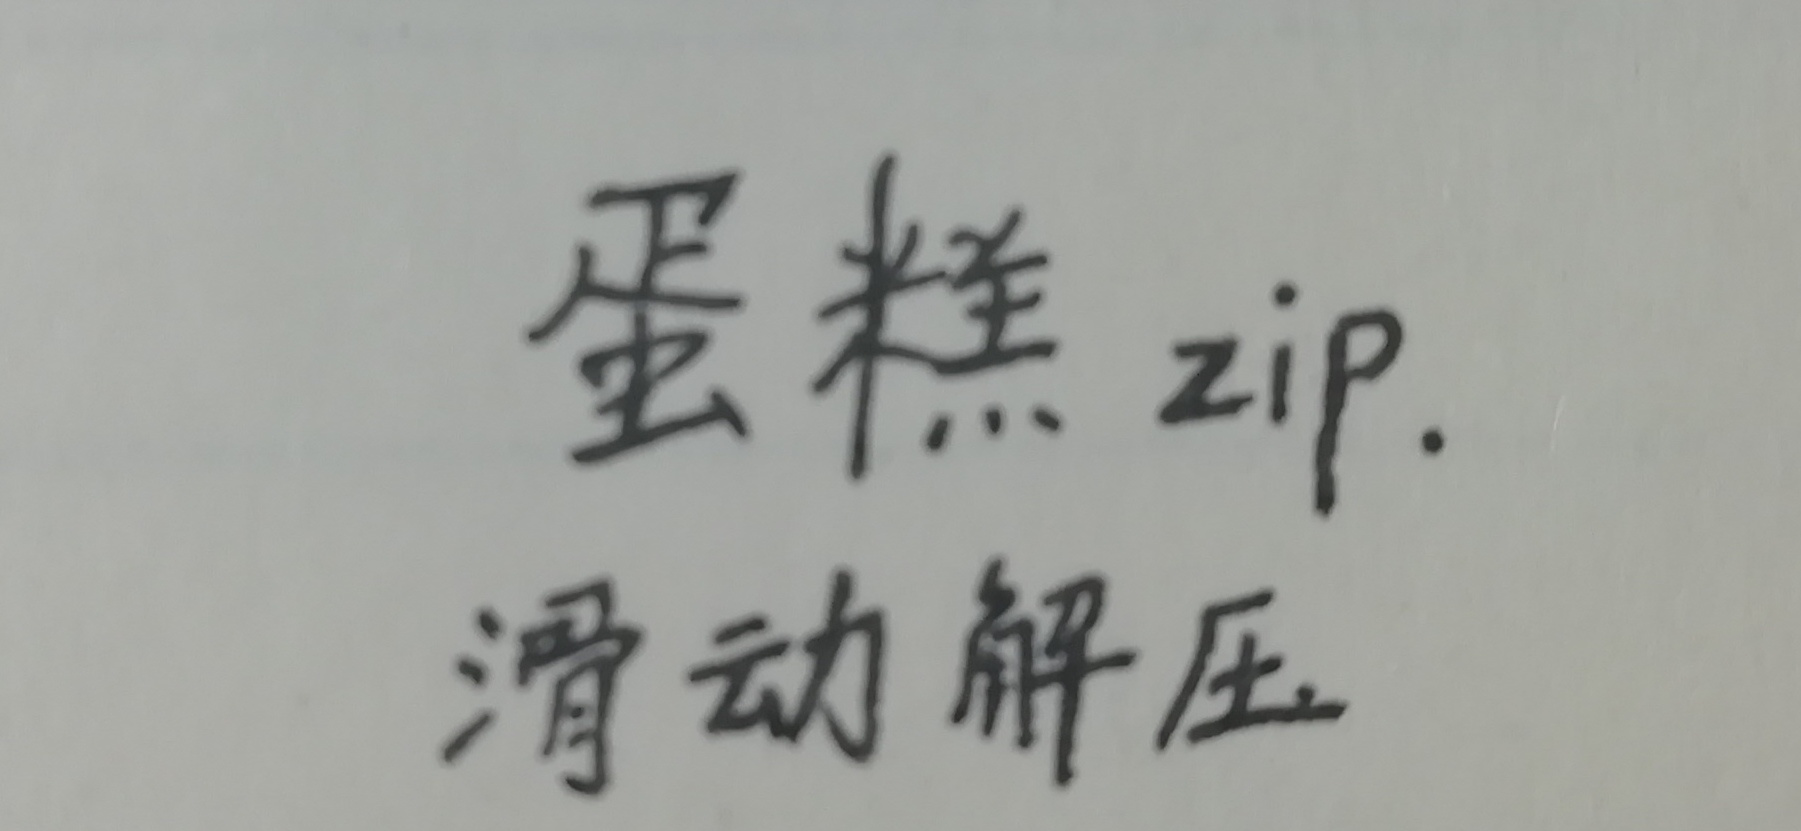 蛋糕 zip.
滑动解压